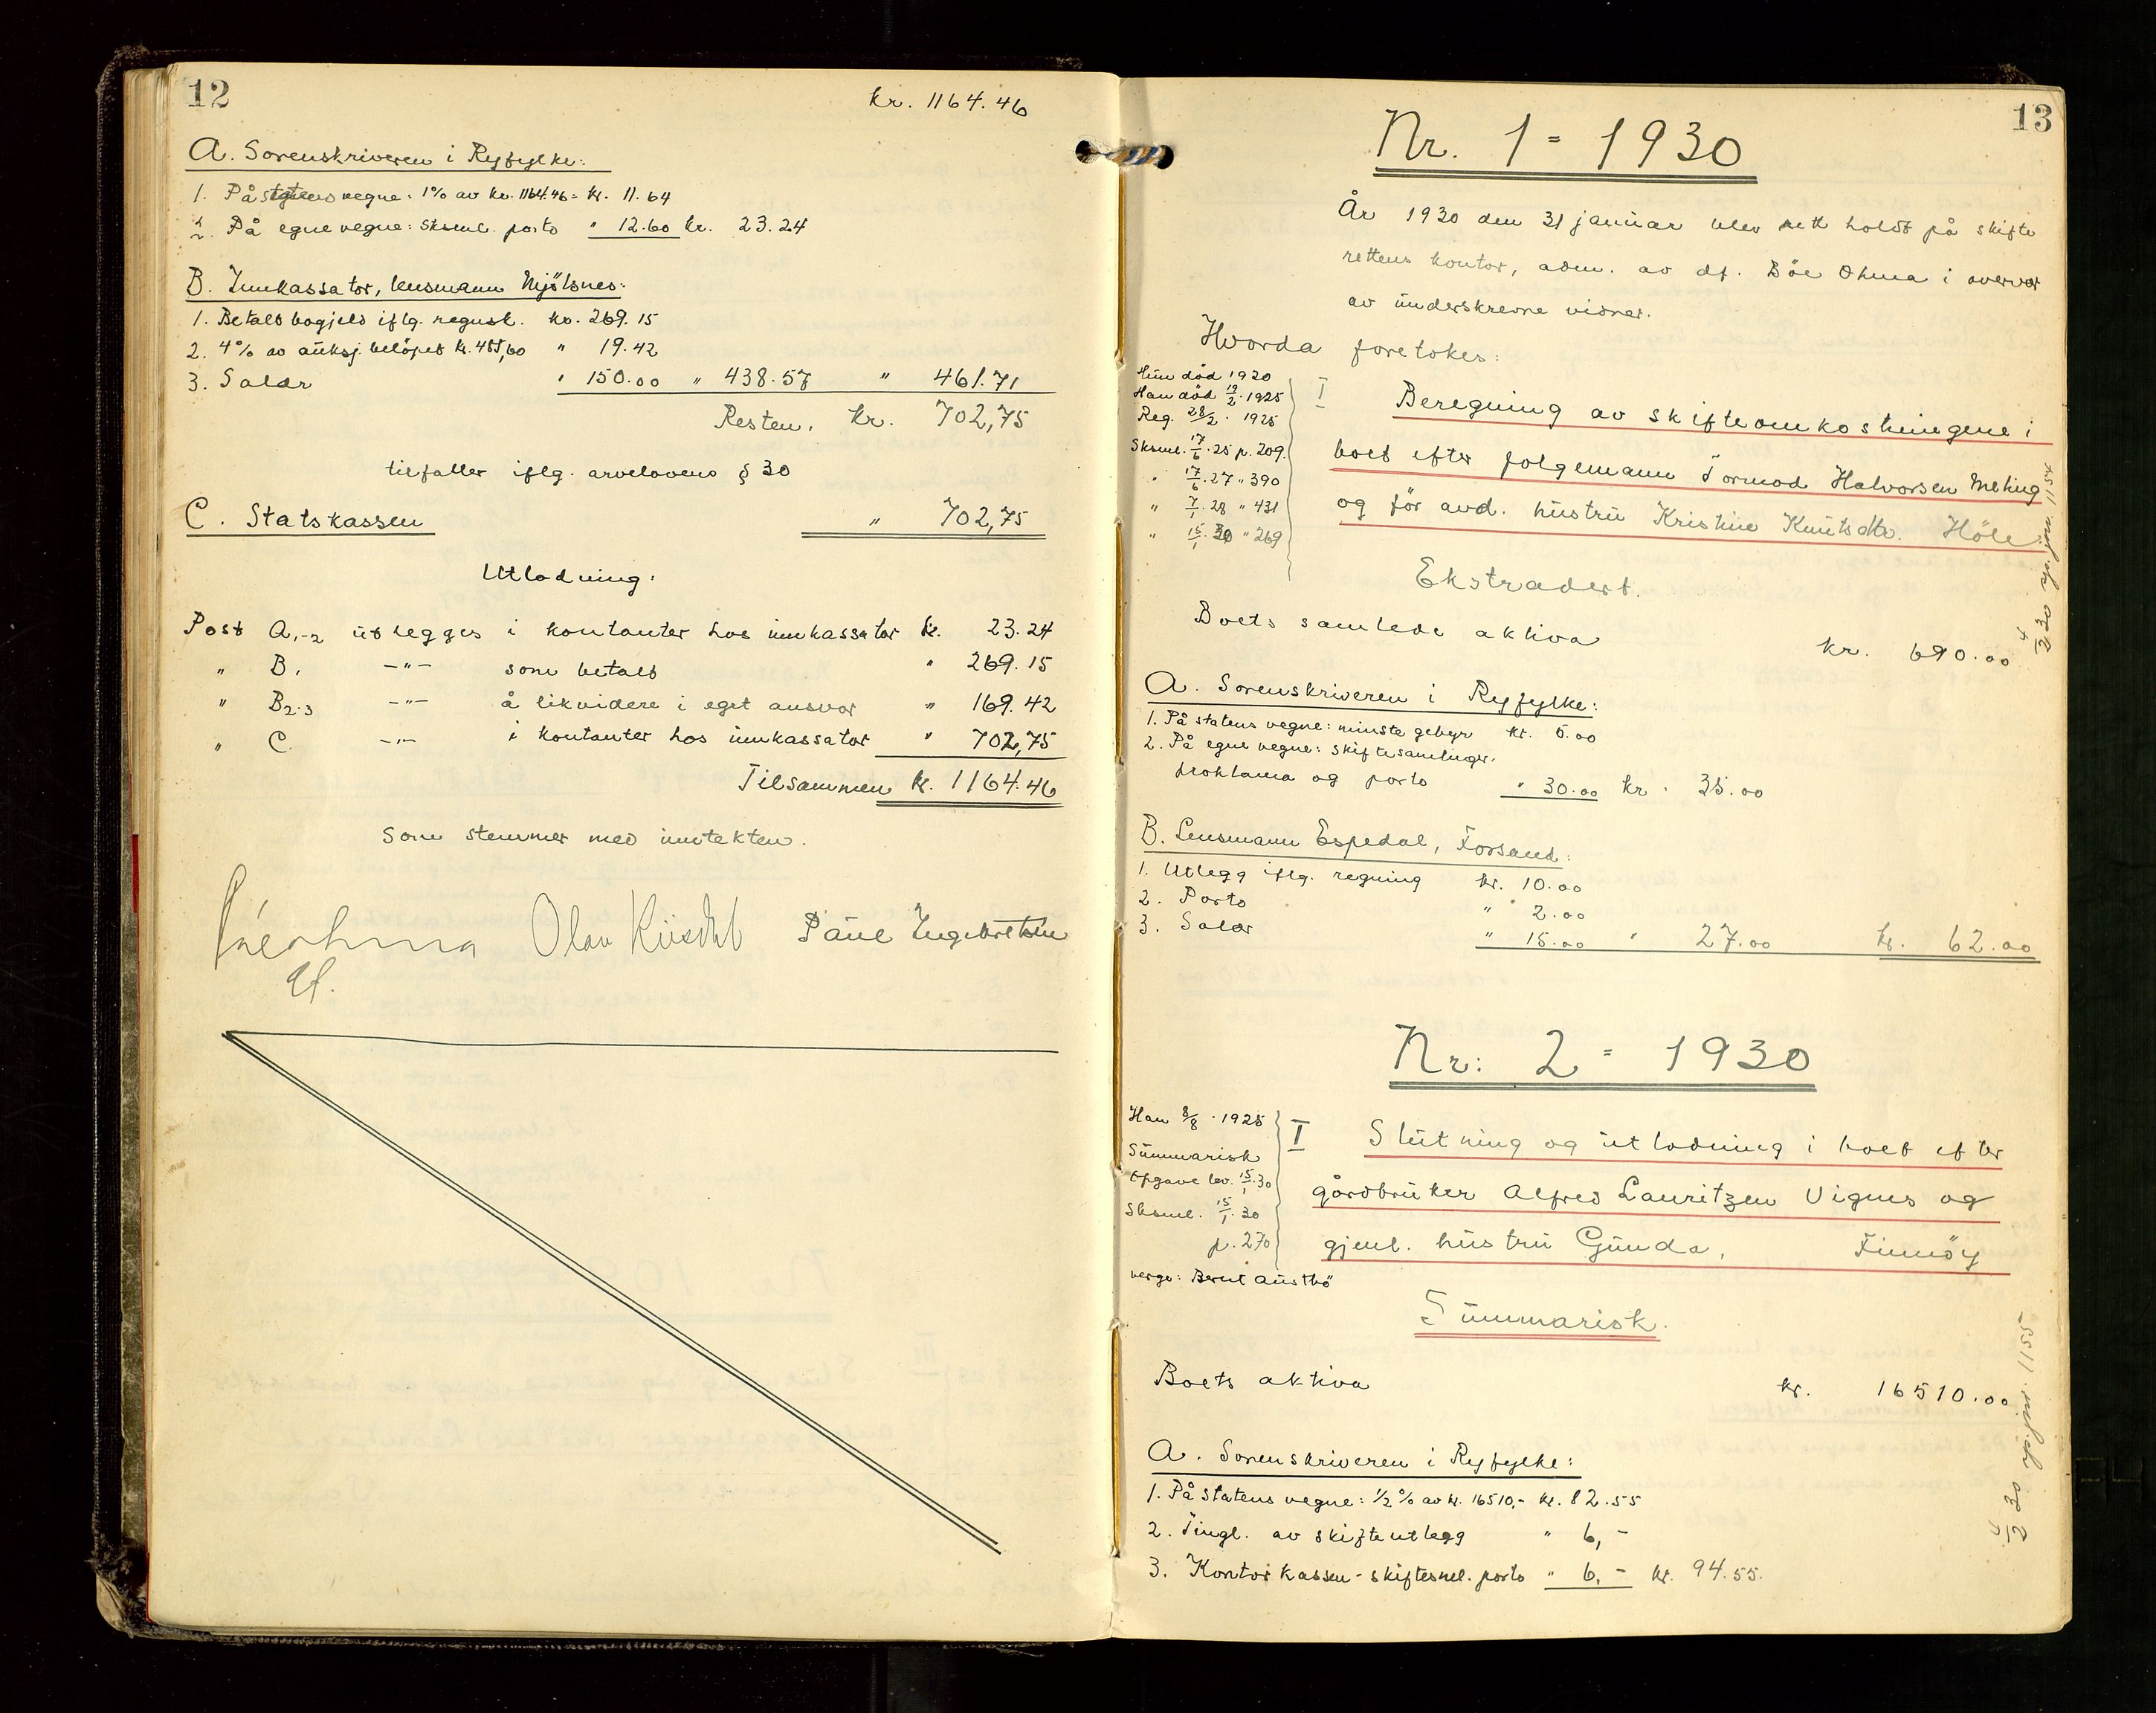 12
kr. 1164.46
A. Sorenskriveren i Ryfylke:
1. På statens vegne: 1% av kr. 1164.46 = kr. 11.64
2. På egne vegne: sksml. porto " 12.60 kr. 23.24
B. Innkassator, lensmann Mjölsnes:
1. Betalt bogjeld iflg. regnsk. kr. 269.15
2. 4% av auksj. belöpet kr. 485,60 " 19.42
3. Salær " 150.00 " 438.57 " 461.71
Resten, kr. 702,75
tilfaller iflg. arvelovens § 30
C. Statskassen " 702,75
Utlodning:
Post A,-2 utlegges i kontanter hos innkassator kr. 23.24
" B, -"- som betalt " 269.15
" B2-3 -"- å likvidere i eget ansvar " 169.42
" C. -"- i kontanter hos innkassator " 702,75
Tilsammen kr. 1164.46
Som stemmer med inntekten.
Böe Ohma Olav Paul Ingebretsen
df.
13
Nr. 1 = 1930
År 1930 den 31 januar blev rett holdt på skifte
rettens kontor, adm. av df. Böe Ohma i overvær
av underskrevne vidner.
Hvorda foretokes:
Hun död 1920
Han död 19/2 1925
Reg. 28/2 1925
Sksml. 17/6 25 p. 209.
" 17/6 27 " 390
" 7/1 28 " 431
" 15/1 30 " 269
I Beregning av skifteomkostningene i
boet efter folgemann Tormod Halvorsen Meling
og för avd. hustru Kristine Knutsdtr. Höle
Ekstradert.
Boets samlede aktiva kr. 690.00
4/2 30 sp. jnr. 1154
A. Sorenskriveren i Ryfylke:
1. På statens vegne: minste gebyr kr. 5.00
2. På egne vegne: skiftesamlinger.
proklama og porto " 30.00 kr. 35.00
B. Lensmann Espedal, Forsand:
1. Utlegg iflg. regning kr. 10.00
2. Porto " 2.00
3. Salær " 15.00 " 27.00 kr. 62.00
Nr: 2 = 1930
Han 8/8 1925
Summarisk
Opgave lev. 15/1 30
Sksml. 15/1 30
p. 270
verge: Bernt Austbö
I Slutning og utlodning i boet efter
gårdbruker Alfred Lauritzen Vignes og
gjenl. hustru Gunda, Finnöy
Summarisk.
Boets aktiva kr. 16510.00
4/2 30 sp. jnr. 1155
A. Sorenskriveren i Ryfylke:
1. På statens vegne: 1/2 % av kr. 16510,- kr. 82.55
2. Tingl. av skifteutlegg " 6,-
3. Kontorkassen - skiftesml. porto " 6,- kr. 94.55.